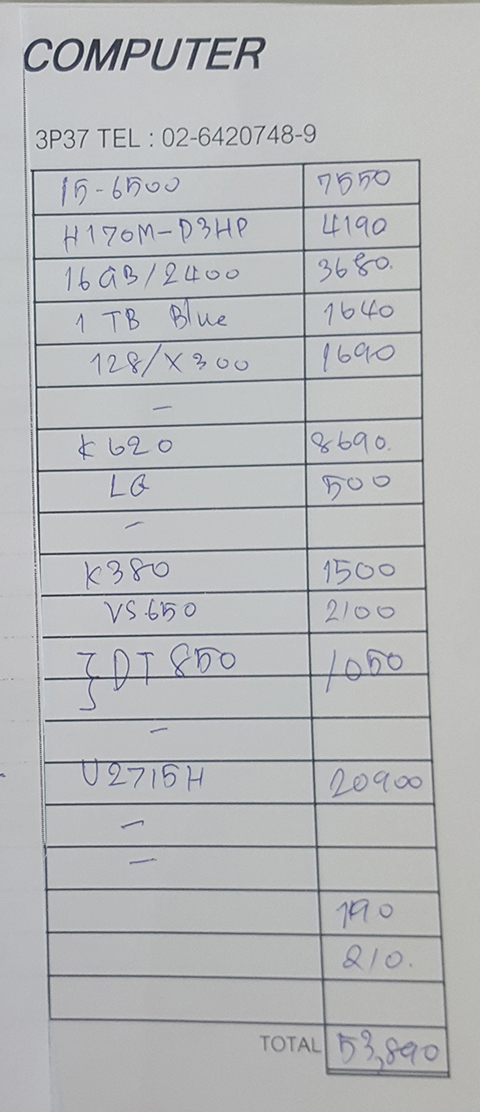 COMPUTER
3P37 TEL : 02-6420748-9
I5-6500 7550
H170M-D3HP 4190
16GB/2400 3680.
1 TB Blue 1640
128/X300 1690
-
K620 8690.
LG 500
-
K380 1500
VS650 2100
DT 850 1050
-
U2715H 20900
-
-
190
210.
TOTAL 53,890